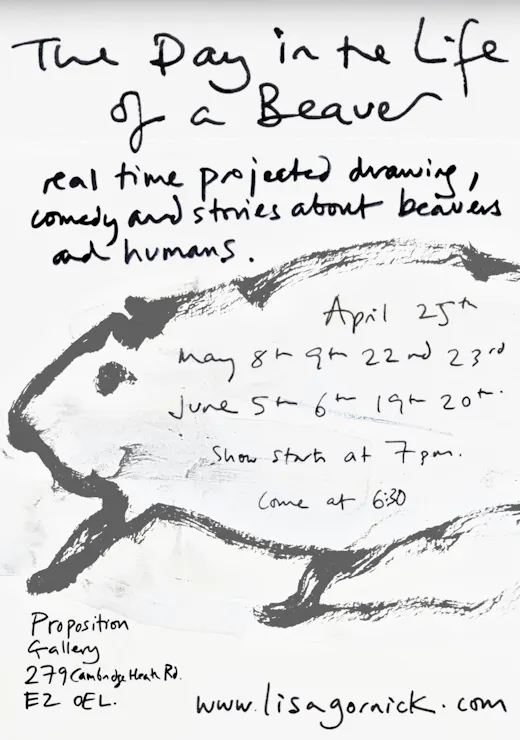 The Day in the Life
of a Beaver
real time projected drawing,
comedy and stories about beavers
and humans.
April 25th
May 8th 9th 22nd 23rd
June 5th 6th 19th 20th.
Show starts at 7pm.
Come at 6:30
Proposition
Gallery
279 Cambridge Heath Rd.
E2 0EL.
www.lisagornick.com